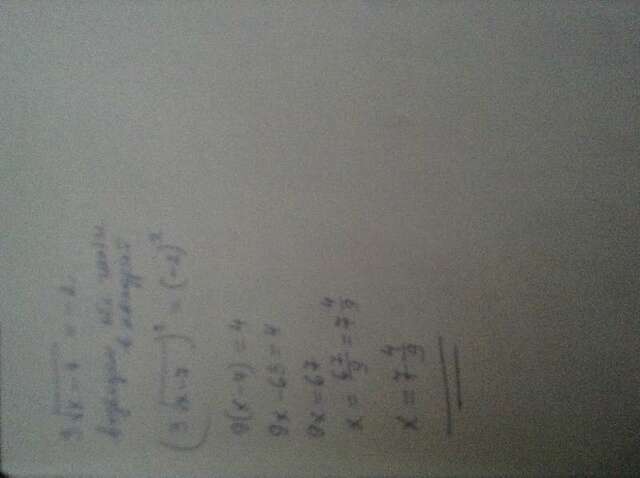 3√x-7 = -2
возводим обе части
в квадрат
(3√x-7)² = (-2)²
9(x-4) = 4
9x - 63 = 4
9x = 67
x = 67/9 = 7 4/9
x = 7 4/9